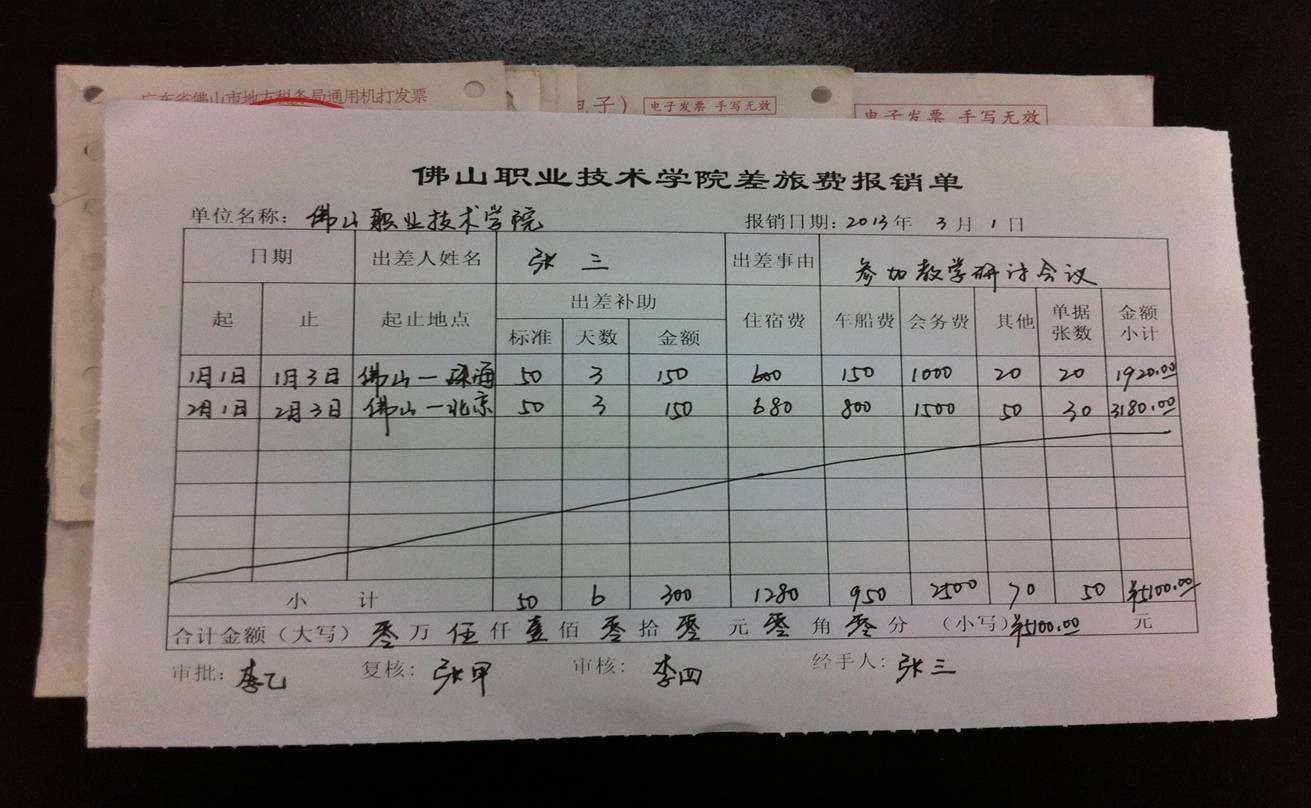 广东省佛山市地方税务局通用机打发票
电子）
电子发票 手写无效
电子发票 手写无效
佛山职业技术学院差旅费报销单
单位名称：佛山职业技术学院 报销日期：2013年 3月 1日
日期 出差人姓名 张三 出差事由 参加教学研讨会议
起 止 起止地点 出差补助 住宿费 车船费 会务费 其他 单据张数 金额小计
标准 天数 金额
1月1日 1月3日 佛山—珠海 50 3 150 600 150 1000 20 20 1920.00
2月1日 2月3日 佛山—北京 50 3 150 680 800 1500 50 30 3180.00
小计 50 6 300 1280 950 2500 70 50 ¥5100.00
合计金额（大写）零万伍仟壹佰零拾零元零角零分 （小写）¥5100.00 元
审批：李乙 复核：张甲 审核：李四 经手人：张三